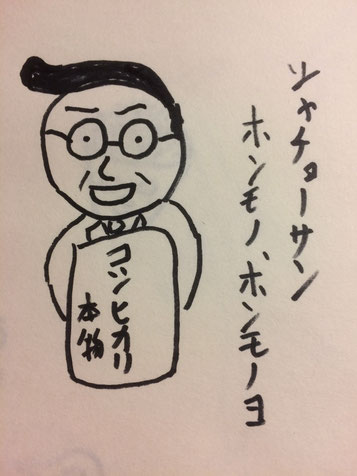 シャチョーサン
ホンモノ、ホンモノヨ
コンヒカリ
本物